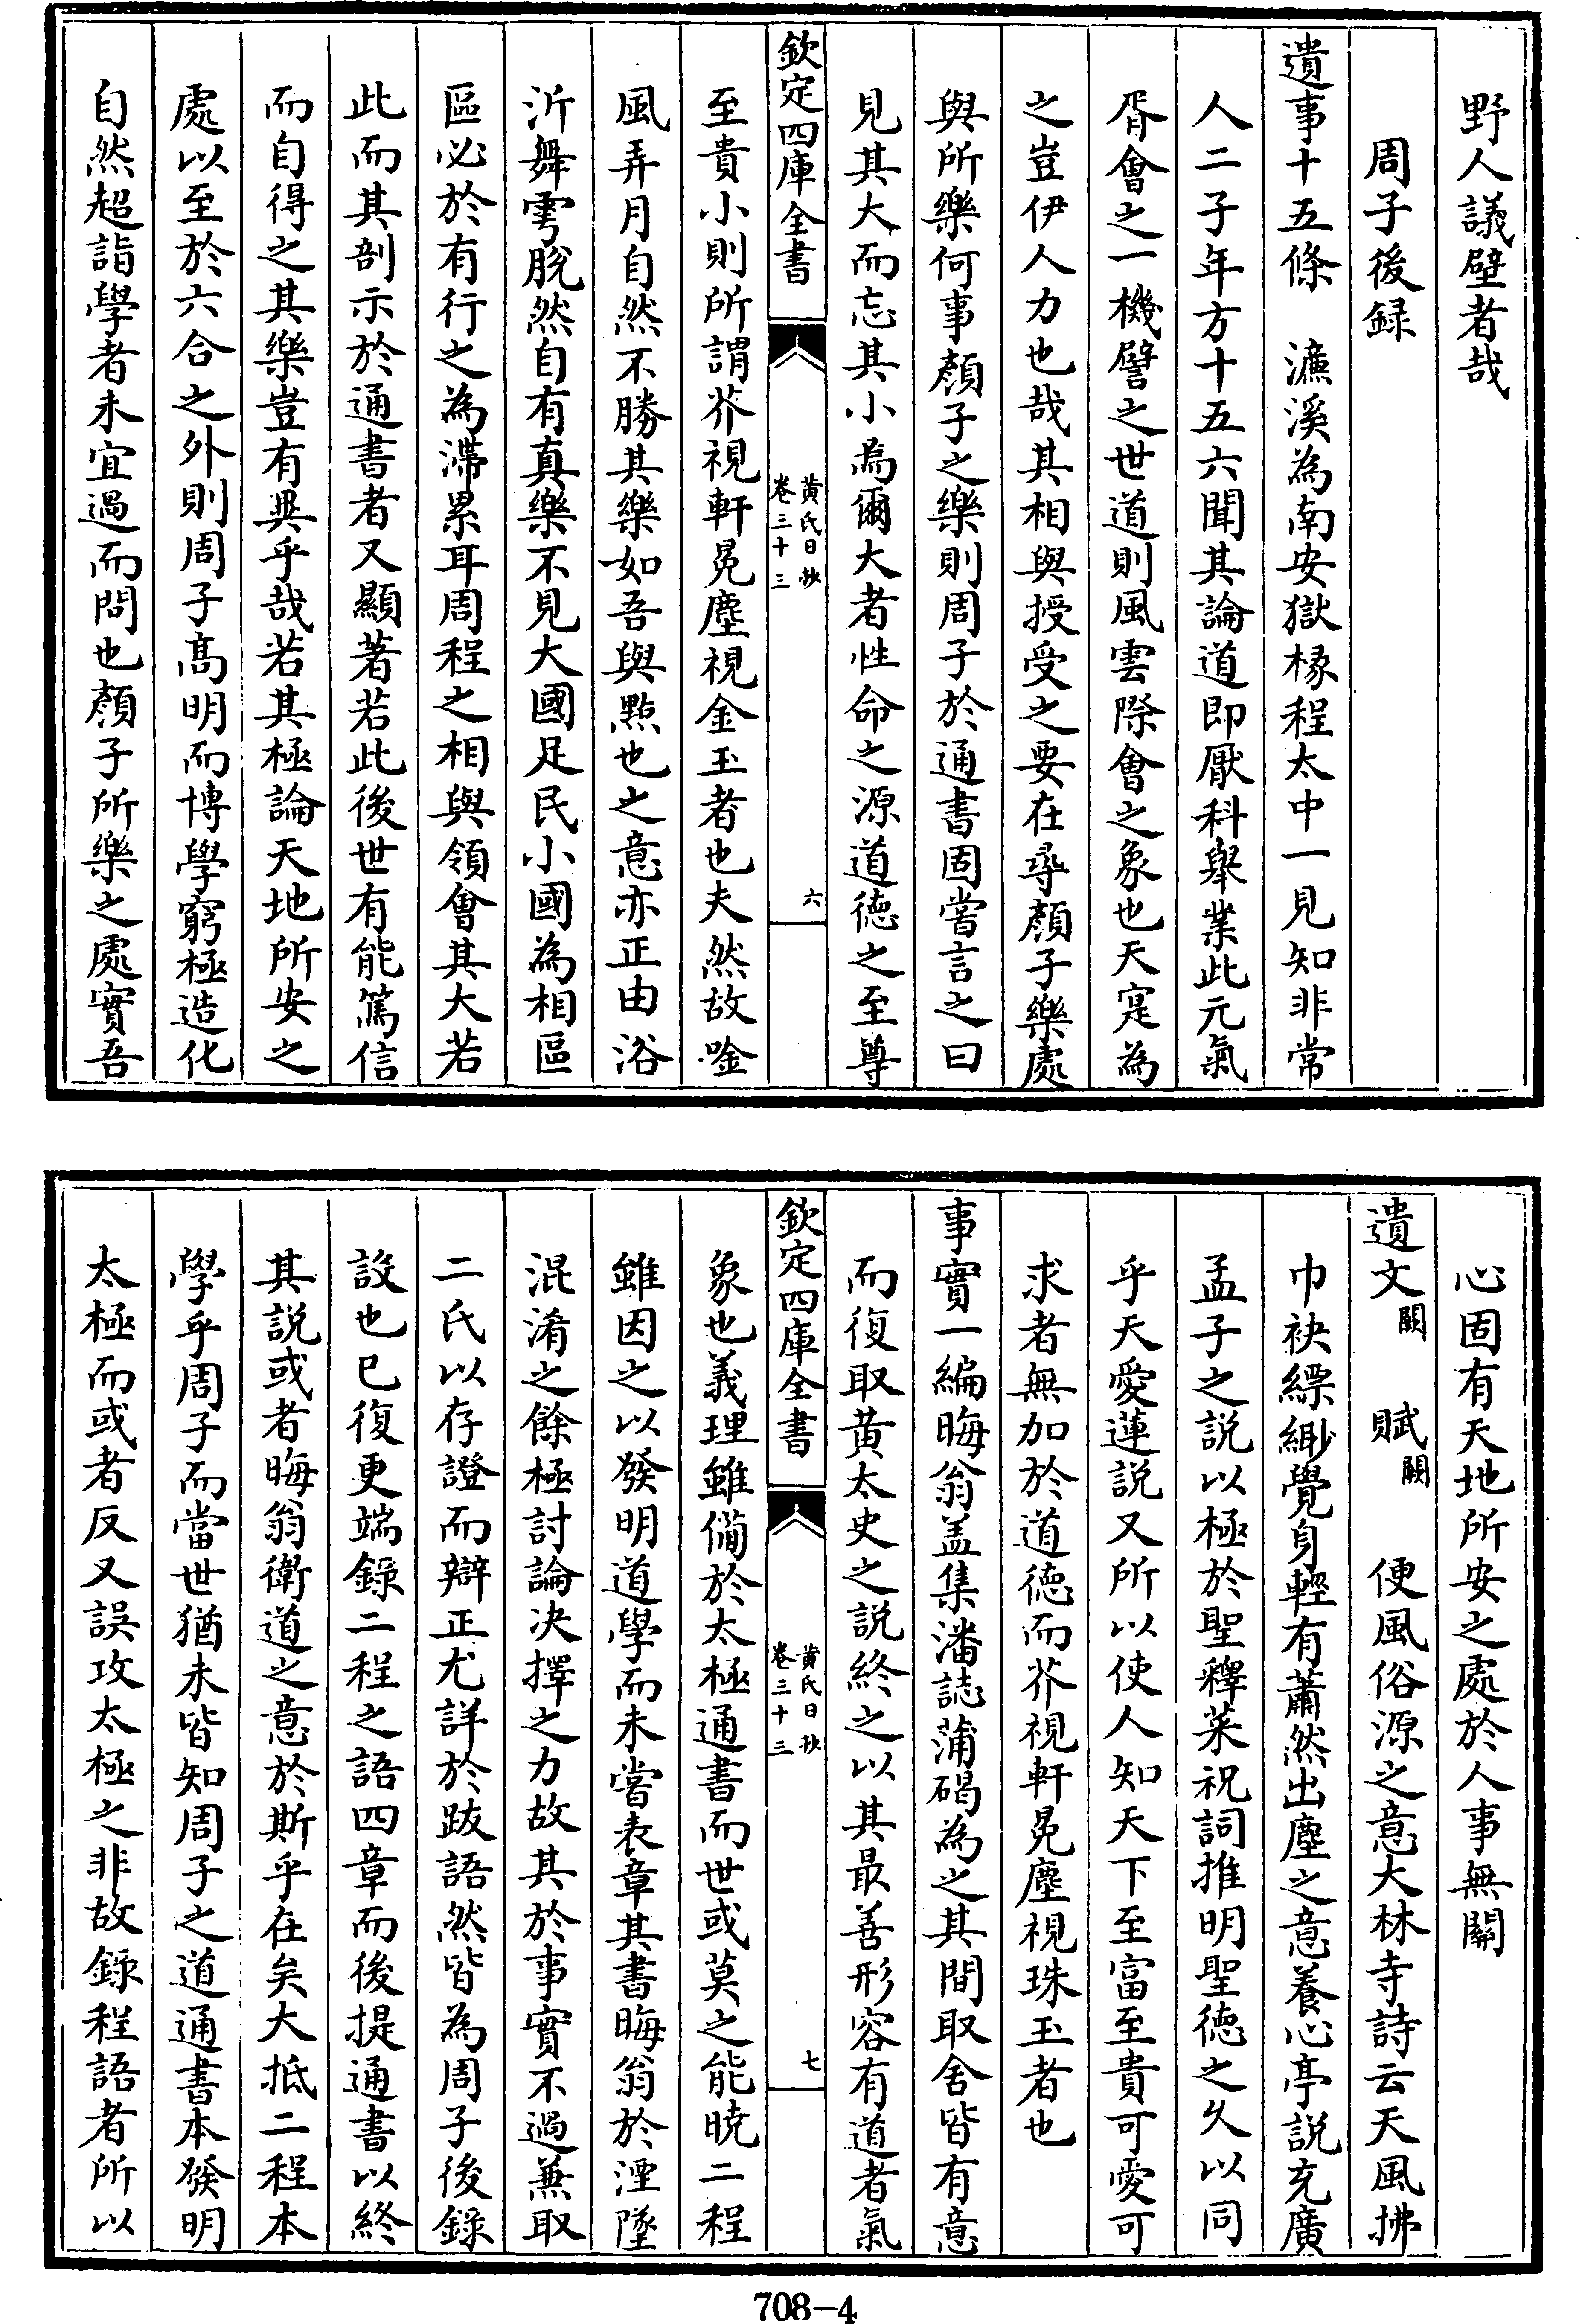 野人議壁者哉
周子後録
遺事十五條　濂溪為南安獄椽程太中一見知非常
人二子年方十五六聞其論道即厭科舉業此元氣
胥會之一機譬之世道則風雲際會之象也天寔為
之豈伊人力也哉其相與授受之要在尋顏子樂處
與所樂何事顏子之樂則周子於通書固嘗言之曰
見其大而忘其小焉爾大者性命之源道徳之至尊
欽定四庫全書
黄氏日抄
卷三十三
六
至貴小則所謂芥視軒冕塵視金玉者也夫然故唫
風弄月自然不勝其樂如吾與㸃也之意亦正由浴
沂舞雩脫然自有真樂不見大國足民小國為相區
區必於有行之為滯累耳周程之相與領會其大若
此而其剖示於通書者又顯著若此後世有能篤信
而自得之其樂豈有異乎哉若其極論天地所安之
處以至於六合之外則周子髙明而博學窮極造化
自然超詣學者未宜過而問也顏子所樂之處實吾
心固有天地所安之處於人事無關
遺文闕　賦闕　便風俗源之意大林寺詩云天風拂
巾袂縹緲覺身輕有蕭然出塵之意養心亭説充廣
孟子之説以極於聖釋菜祝詞推明聖徳之久以同
乎天愛蓮説又所以使人知天下至富至貴可愛可
求者無加於道徳而芥視軒冕塵視珠玉者也
事實一編晦翁盖集潘誌蒲碣為之其間取舍皆有意
而復取黄太史之説終之以其最善形容有道者氣
欽定四庫全書
黄氏日抄
卷三十三
七
象也義理雖備於太極通書而世或莫之能曉二程
雖因之以發明道學而未嘗表章其書晦翁於湮墜
混淆之餘極討論决擇之力故其於事實不過兼取
二氏以存證而辯正尤詳於跋語然皆為周子後錄
設也已復更端錄二程之語四章而後提通書以終
其説或者晦翁衛道之意於斯乎在矣大抵二程本
學乎周子而當世猶未皆知周子之道通書本發明
太極而或者反又誤攻太極之非故錄程語者所以
708-4